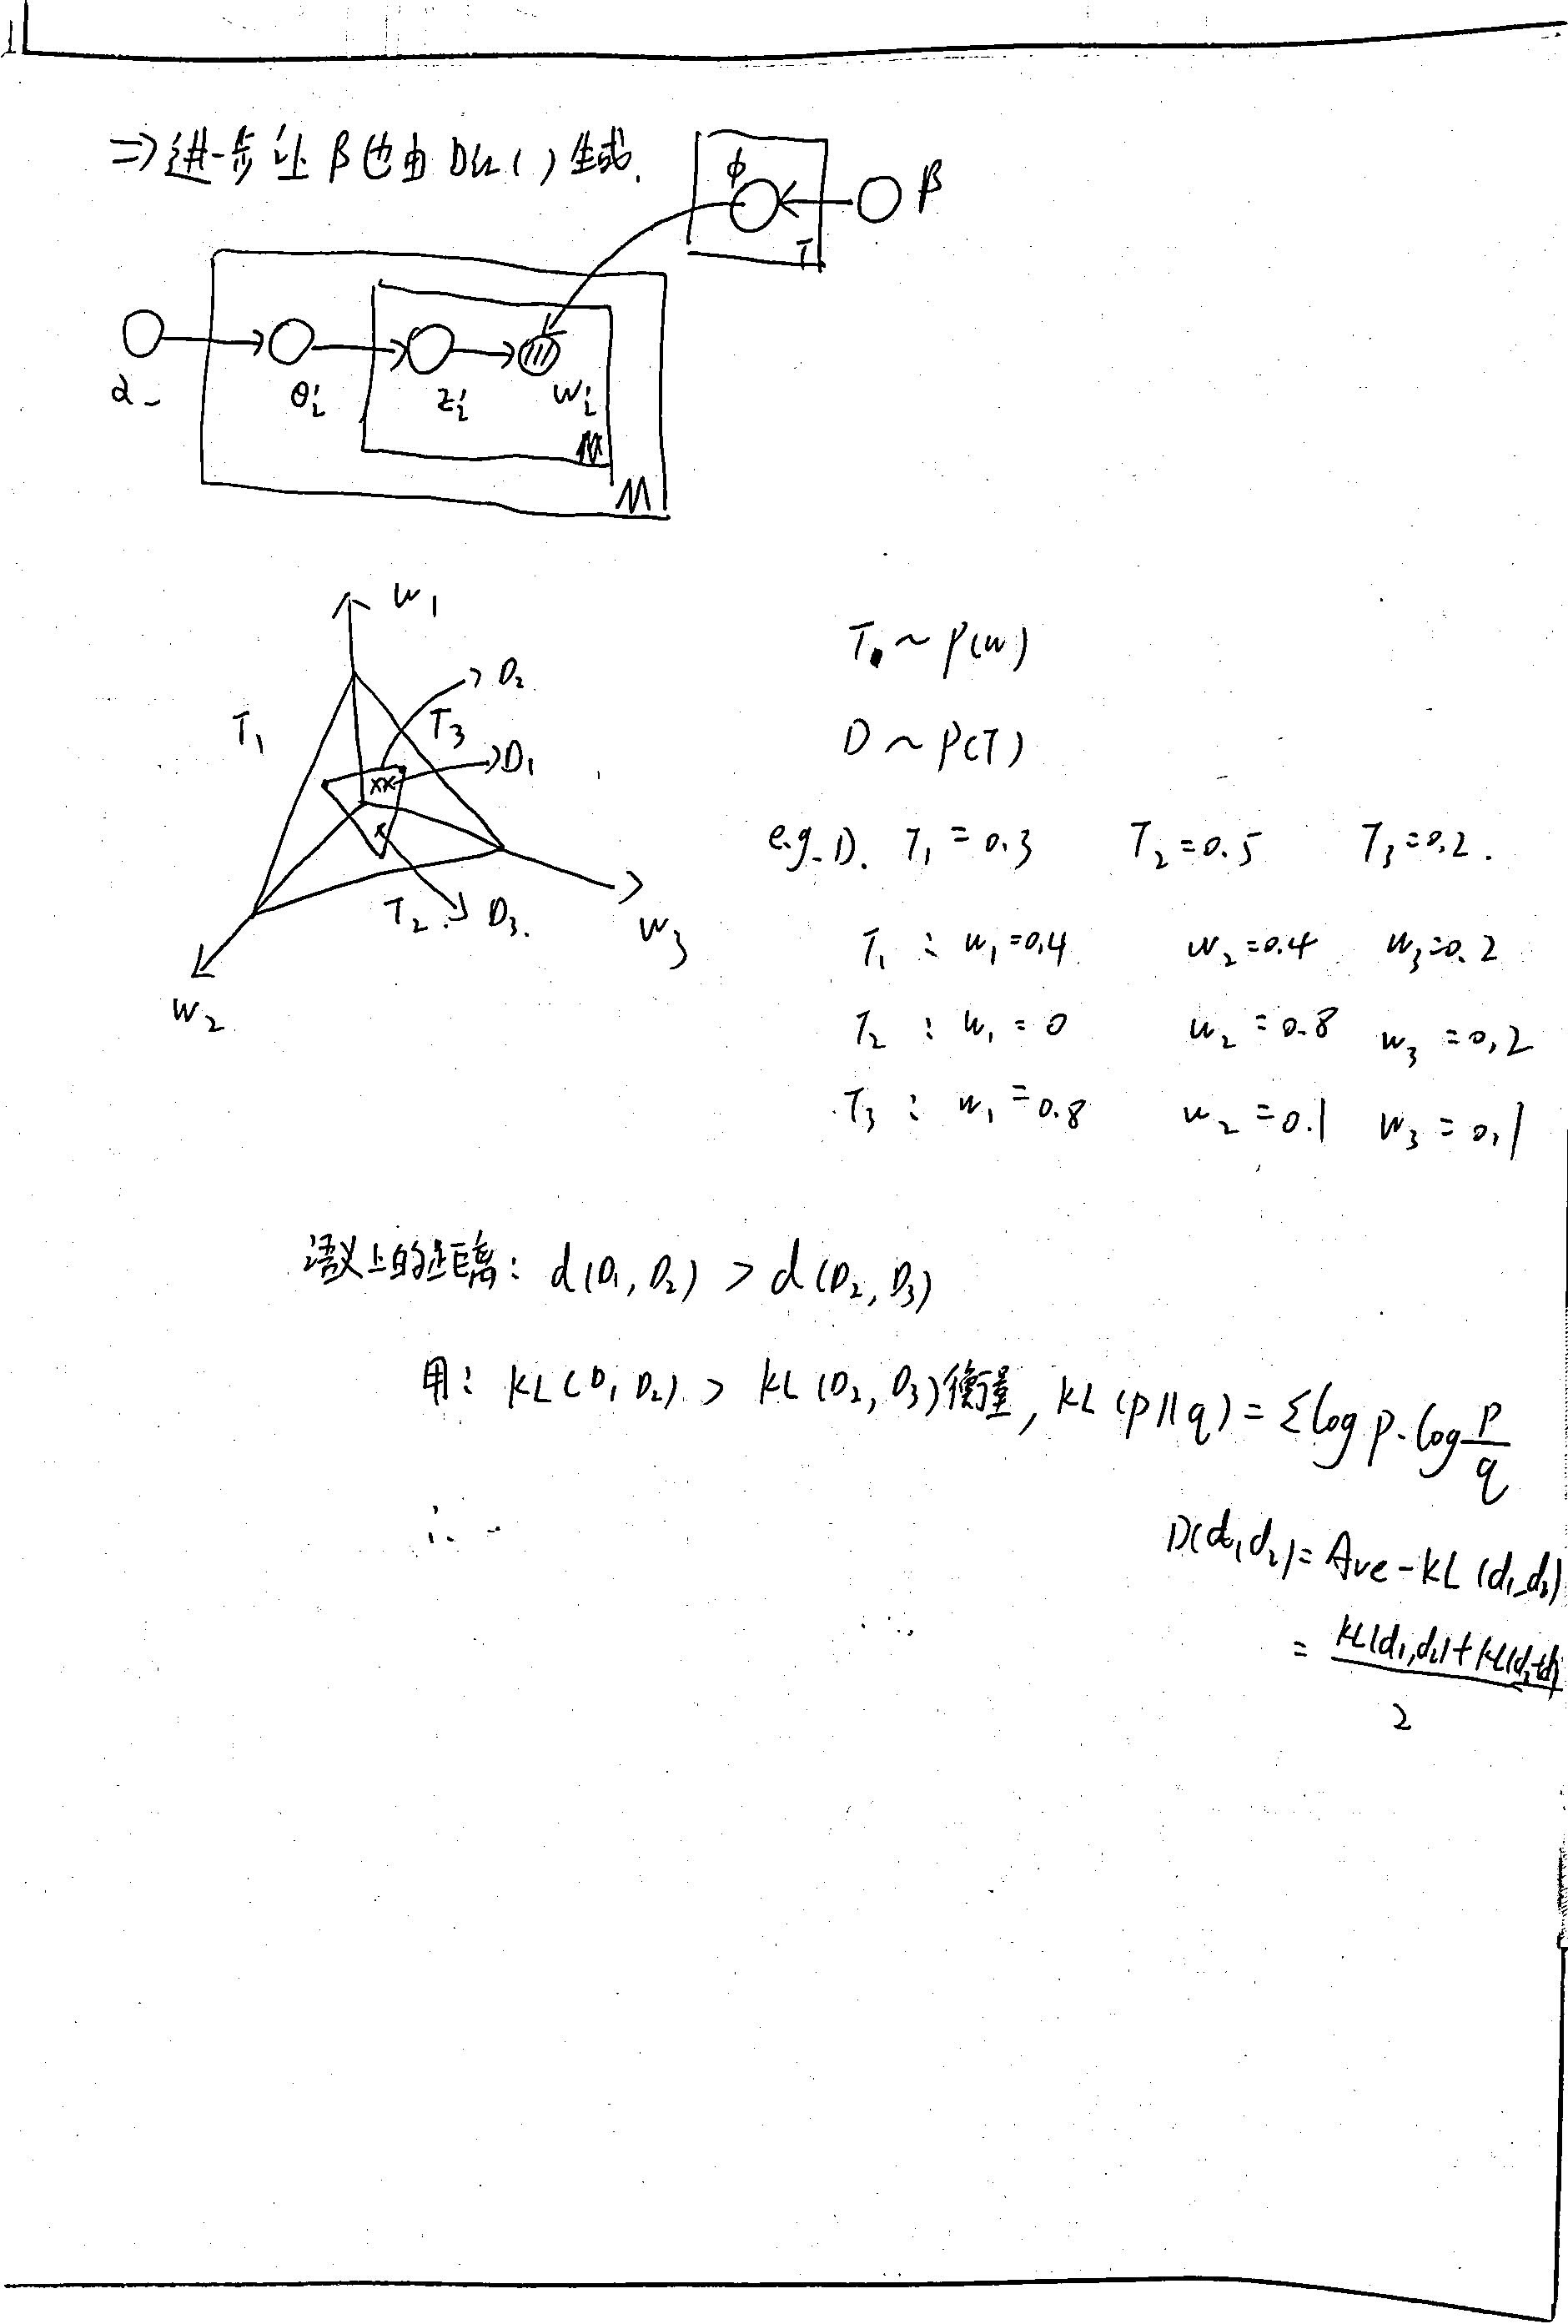 ⇒ 进一步让 β 也由 Dir( ) 生成.
ϕ
β
T
α
θi
zi
wi
N
M
w1
D2
T1
T3
D1
T2
D3.
w3
w2
T ~ P(w)
D ~ P(T)
e.g. D. T1 = 0.3 T2 = 0.5 T3 = 0.2.
T1 : w1 = 0.4 w2 = 0.4 w3 = 0.2
T2 : w1 = 0 w2 = 0.8 w3 = 0.2
T3 : w1 = 0.8 w2 = 0.1 w3 = 0.1
语义上的距离: d(D1, D2) > d(D2, D3)
用: KL(D1 D2) > KL(D2, D3) 衡量, KL(p||q) = Σ log p · log p/q
D(d1,d2) = Ave-KL(d1,d2)
= KL(d1,d2) + KL(d2,d1) / 2